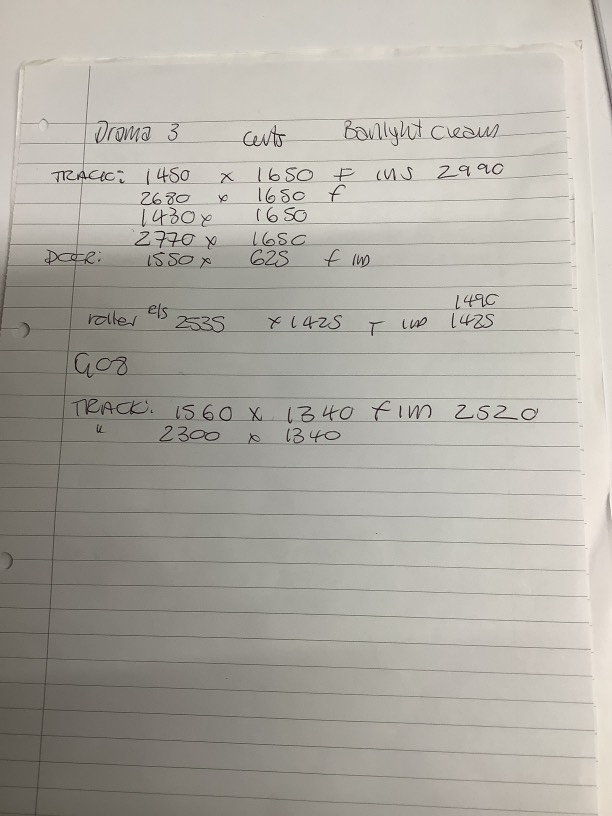 Drama 3 certs Banlight cream
TRACK: 1450 x 1650 F ins 2990
2680 x 1650 f
1430 x 1650
2770 x 1650
DOOR: 1550 x 625 f in
1490
roller e/s 2535 x 1425 T in 1425
G08
TRACK: 1560 x 1340 f in 2520
" 2300 x 1340